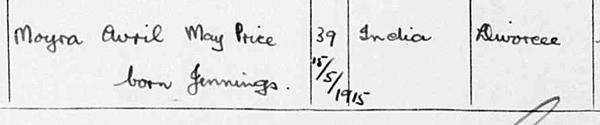 Moyra Avril May Price 39 India Divorcee
born Jennings. 15/5/1915